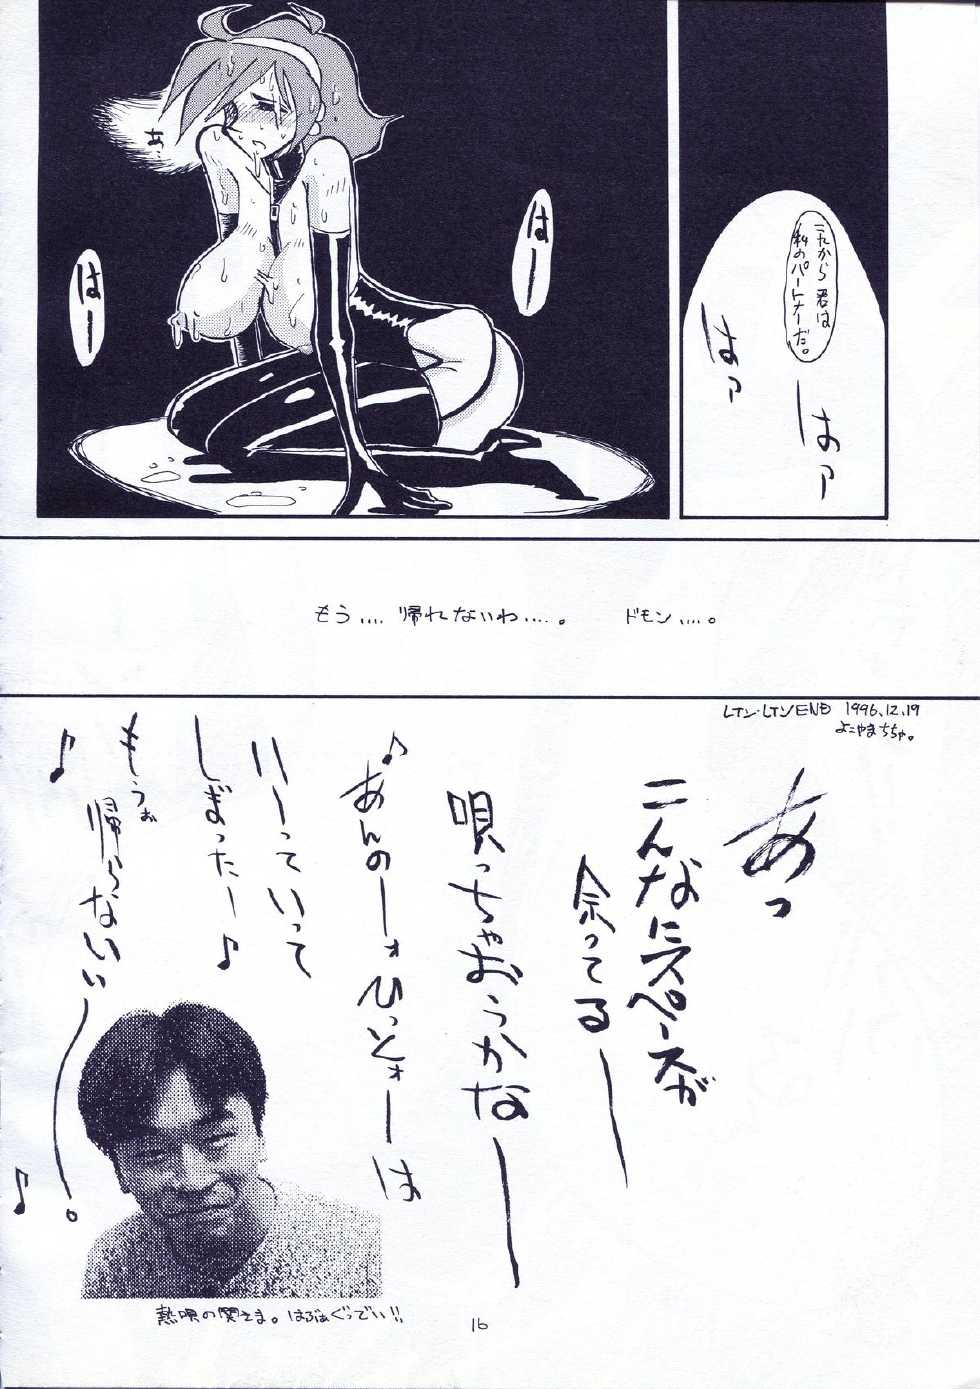 これから君は
私のパートナーだ。
はァー
はァー
はー
あ、
はー
もう.... 帰れないわ....。
ドモン....。
レイン・レインEND 1996.12.19
よこやまちちゃ。
あっ
こんなにスペースが
余ってるー
唄っちゃおうかなー
♪あんのーォひっとォーは
いーっていって
しぎったー♪
もうぉ帰らないいー。♪
熱唄の関さま。はるばぁぐっでい!!
16